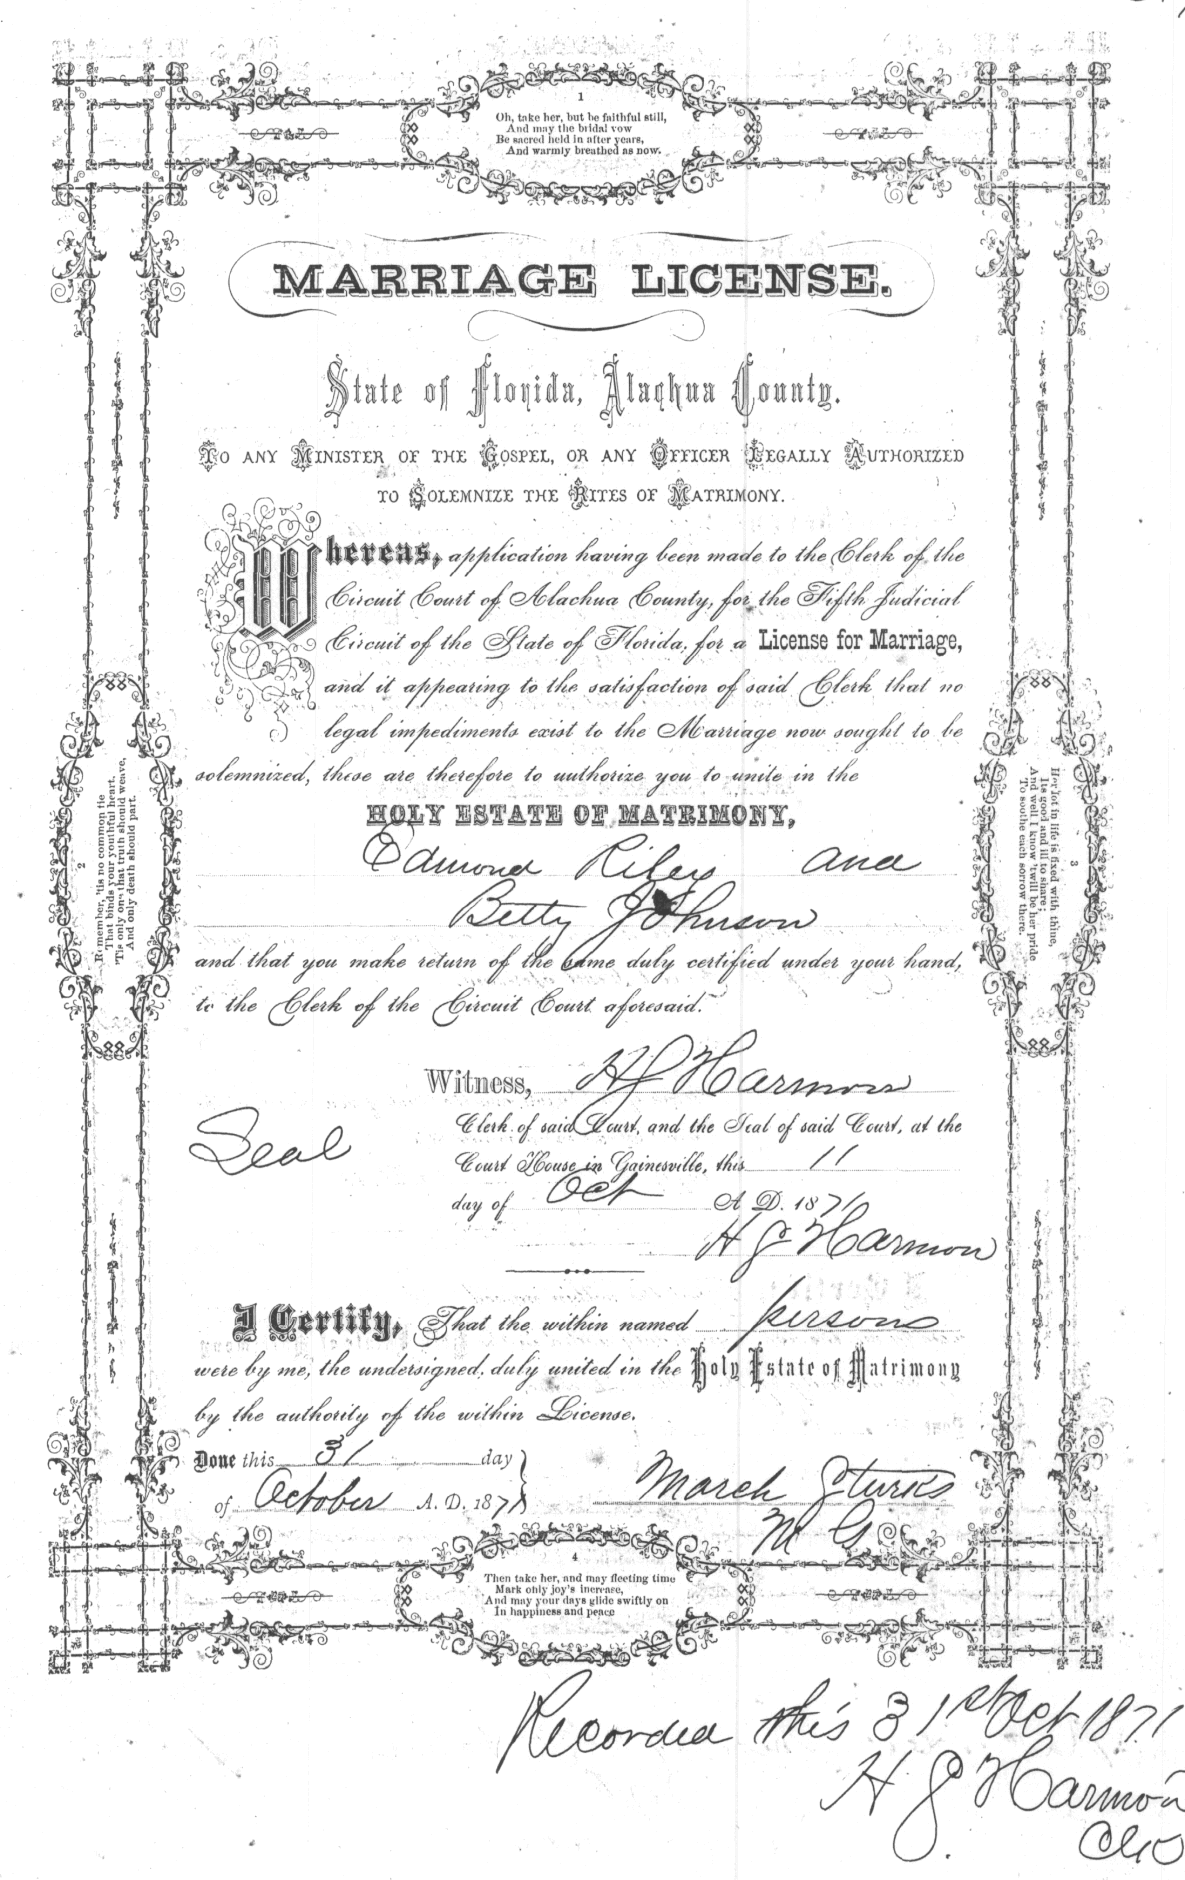 1
Oh, take her, but be faithful still,
And may the bridal vow
Be sacred held in after years,
And warmly breathed as now.
MARRIAGE LICENSE.
State of Florida, Alachua County.
TO ANY MINISTER OF THE GOSPEL, OR ANY OFFICER LEGALLY AUTHORIZED
TO SOLEMNIZE THE RITES OF MATRIMONY.
Whereas, application having been made to the Clerk of the
Circuit Court of Alachua County, for the Fifth Judicial
Circuit of the State of Florida, for a License for Marriage,
and it appearing to the satisfaction of said Clerk that no
legal impediments exist to the Marriage now sought to be
solemnized, these are therefore to authorize you to unite in the
HOLY ESTATE OF MATRIMONY,
Edmond Riley and
Betty Johnson
and that you make return of the same duly certified under your hand,
to the Clerk of the Circuit Court aforesaid.
Witness, H J Harmon
Clerk of said Court, and the Seal of said Court, at the
Seal
Court House in Gainesville, this 11
day of Oct A D. 1871
H J Harmon
I Certify, That the within named persons
were by me, the undersigned, duly united in the Holy Estate of Matrimony
by the authority of the within License.
Done this 31 day
of October A. D. 1871
March Sturks
M G
2
Remember, 'tis no common tie
That binds your youthful heart,
'Tis only one that truth should weave,
And only death should part.
3
Her lot in life is fixed with thine,
Its good and ill to share;
And well I know 'twill be her pride
To soothe each sorrow there.
4
Then take her, and may fleeting time
Mark only joy's increase,
And may your days glide swiftly on
In happiness and peace
Recorded this 31st Oct 1871
H J Harmon
Clk